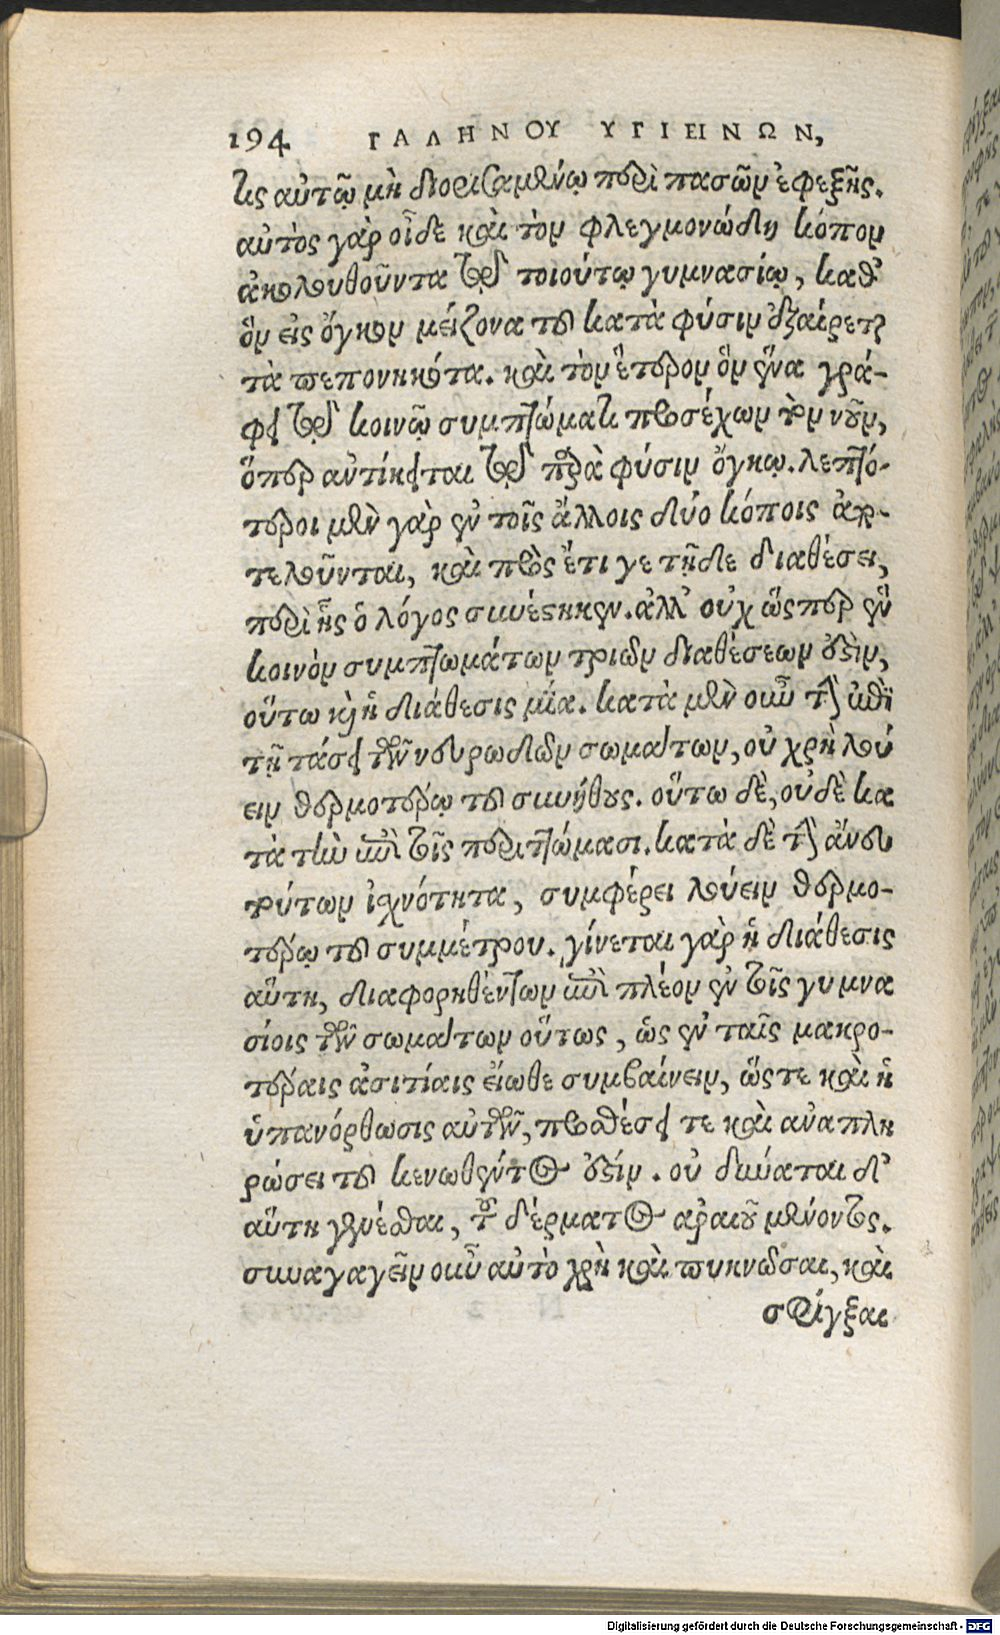 194 ΓΑΛΗΝΟΥ ΥΓΙΕΙΝΩΝ,
τις αὐτῷ μὴ διορισαμένῳ περὶ πασῶν ἐφεξῆς.
αὐτὸς γὰρ οἶδε καὶ τὸν φλεγμονώδη κόπον
ἀκολουθοῦντα τῷ τοιούτῳ γυμνασίῳ, καθ᾽
ὃν εἰς ὄγκον μείζονα τοῦ κατὰ φύσιν ἐξαίρεται
τὰ πεπονηκότα. καὶ τὸν ἕτερον ὃν ἕνα γρά-
φει τῷ κοινῷ συμπτώματι προσέχων τὸν νοῦν,
ὅπερ ἀντίκειται τῷ παρὰ φύσιν ὄγκῳ. λεπτό-
τεροι μὲν γὰρ ἐν τοῖς ἄλλοις δύο κόποις ἀπο-
τελοῦνται, καὶ πρὸς ἔτι γε τῇδε διαθέσει,
περὶ ἧς ὁ λόγος συνέστηκεν. ἀλλ᾽ οὐχ ὥσπερ ἓν
κοινὸν συμπτωμάτων τριῶν διαθέσεων ἐστὶν,
οὕτω καὶ ἡ διάθεσις μία. κατὰ μὲν οὖν τὴν ἐπὶ
τῇ τάσει τῶν νευρωδῶν σωμάτων, οὐ χρὴ λού
ειν θερμοτέρῳ τοῦ συνήθους. οὕτω δὲ, οὐδὲ κα
τὰ τὴν ἐπὶ τοῖς περιττώμασι. κατὰ δὲ τὴν ἄνευ
τούτων ἰσχνότητα, συμφέρει λούειν θερμο-
τέρῳ τοῦ συμμέτρου. γίνεται γὰρ ἡ διάθεσις
αὕτη, διαφορηθέντων ἐπὶ πλέον ἐν τοῖς γυμνα
σίοις τῶν σωμάτων οὕτως, ὡς ἐν ταῖς μακρο-
τέραις ἀσιτίαις εἴωθε συμβαίνειν, ὥστε καὶ ἡ
ὑπανόρθωσις αὐτῶν, προσθέσει τε καὶ ἀναπλη
ρώσει τοῦ κενωθέντος ἐστίν. οὐ δύναται δ᾽
αὕτη γενέσθαι, τοῦ δέρματος ἀραιοῦ μένοντος.
συναγαγεῖν οὖν αὐτὸ χρὴ καὶ πυκνῶσαι, καὶ
σφίγξαι
Digitalisierung gefördert durch die Deutsche Forschungsgemeinschaft - DFG